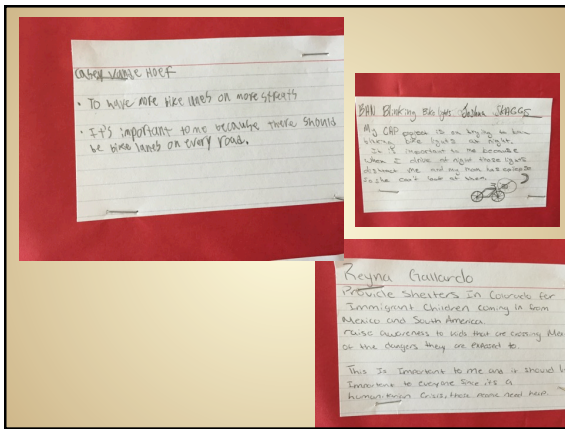 Casey Vande Hoef
• To have more bike lanes on more streets
• It's important to me because there should
be bike lanes on every road.
BAN Blinking Bike lights Joshua SKAGGS
My CAP project is on trying to ban
blinking bike lights at night.
It is important to me because
when I drive at night those lights
distract me and my mom has
so she can't look at them.
Reyna Gallardo
Provide Shelters In Colorado for
Immigrant Children coming in from
Mexico and South America.
raise awareness to kids that are crossing
of the dangers they are exposed to.
This Is Important to me and it should
Important to everyone since its a
humanitarian Crisis, these people need help.